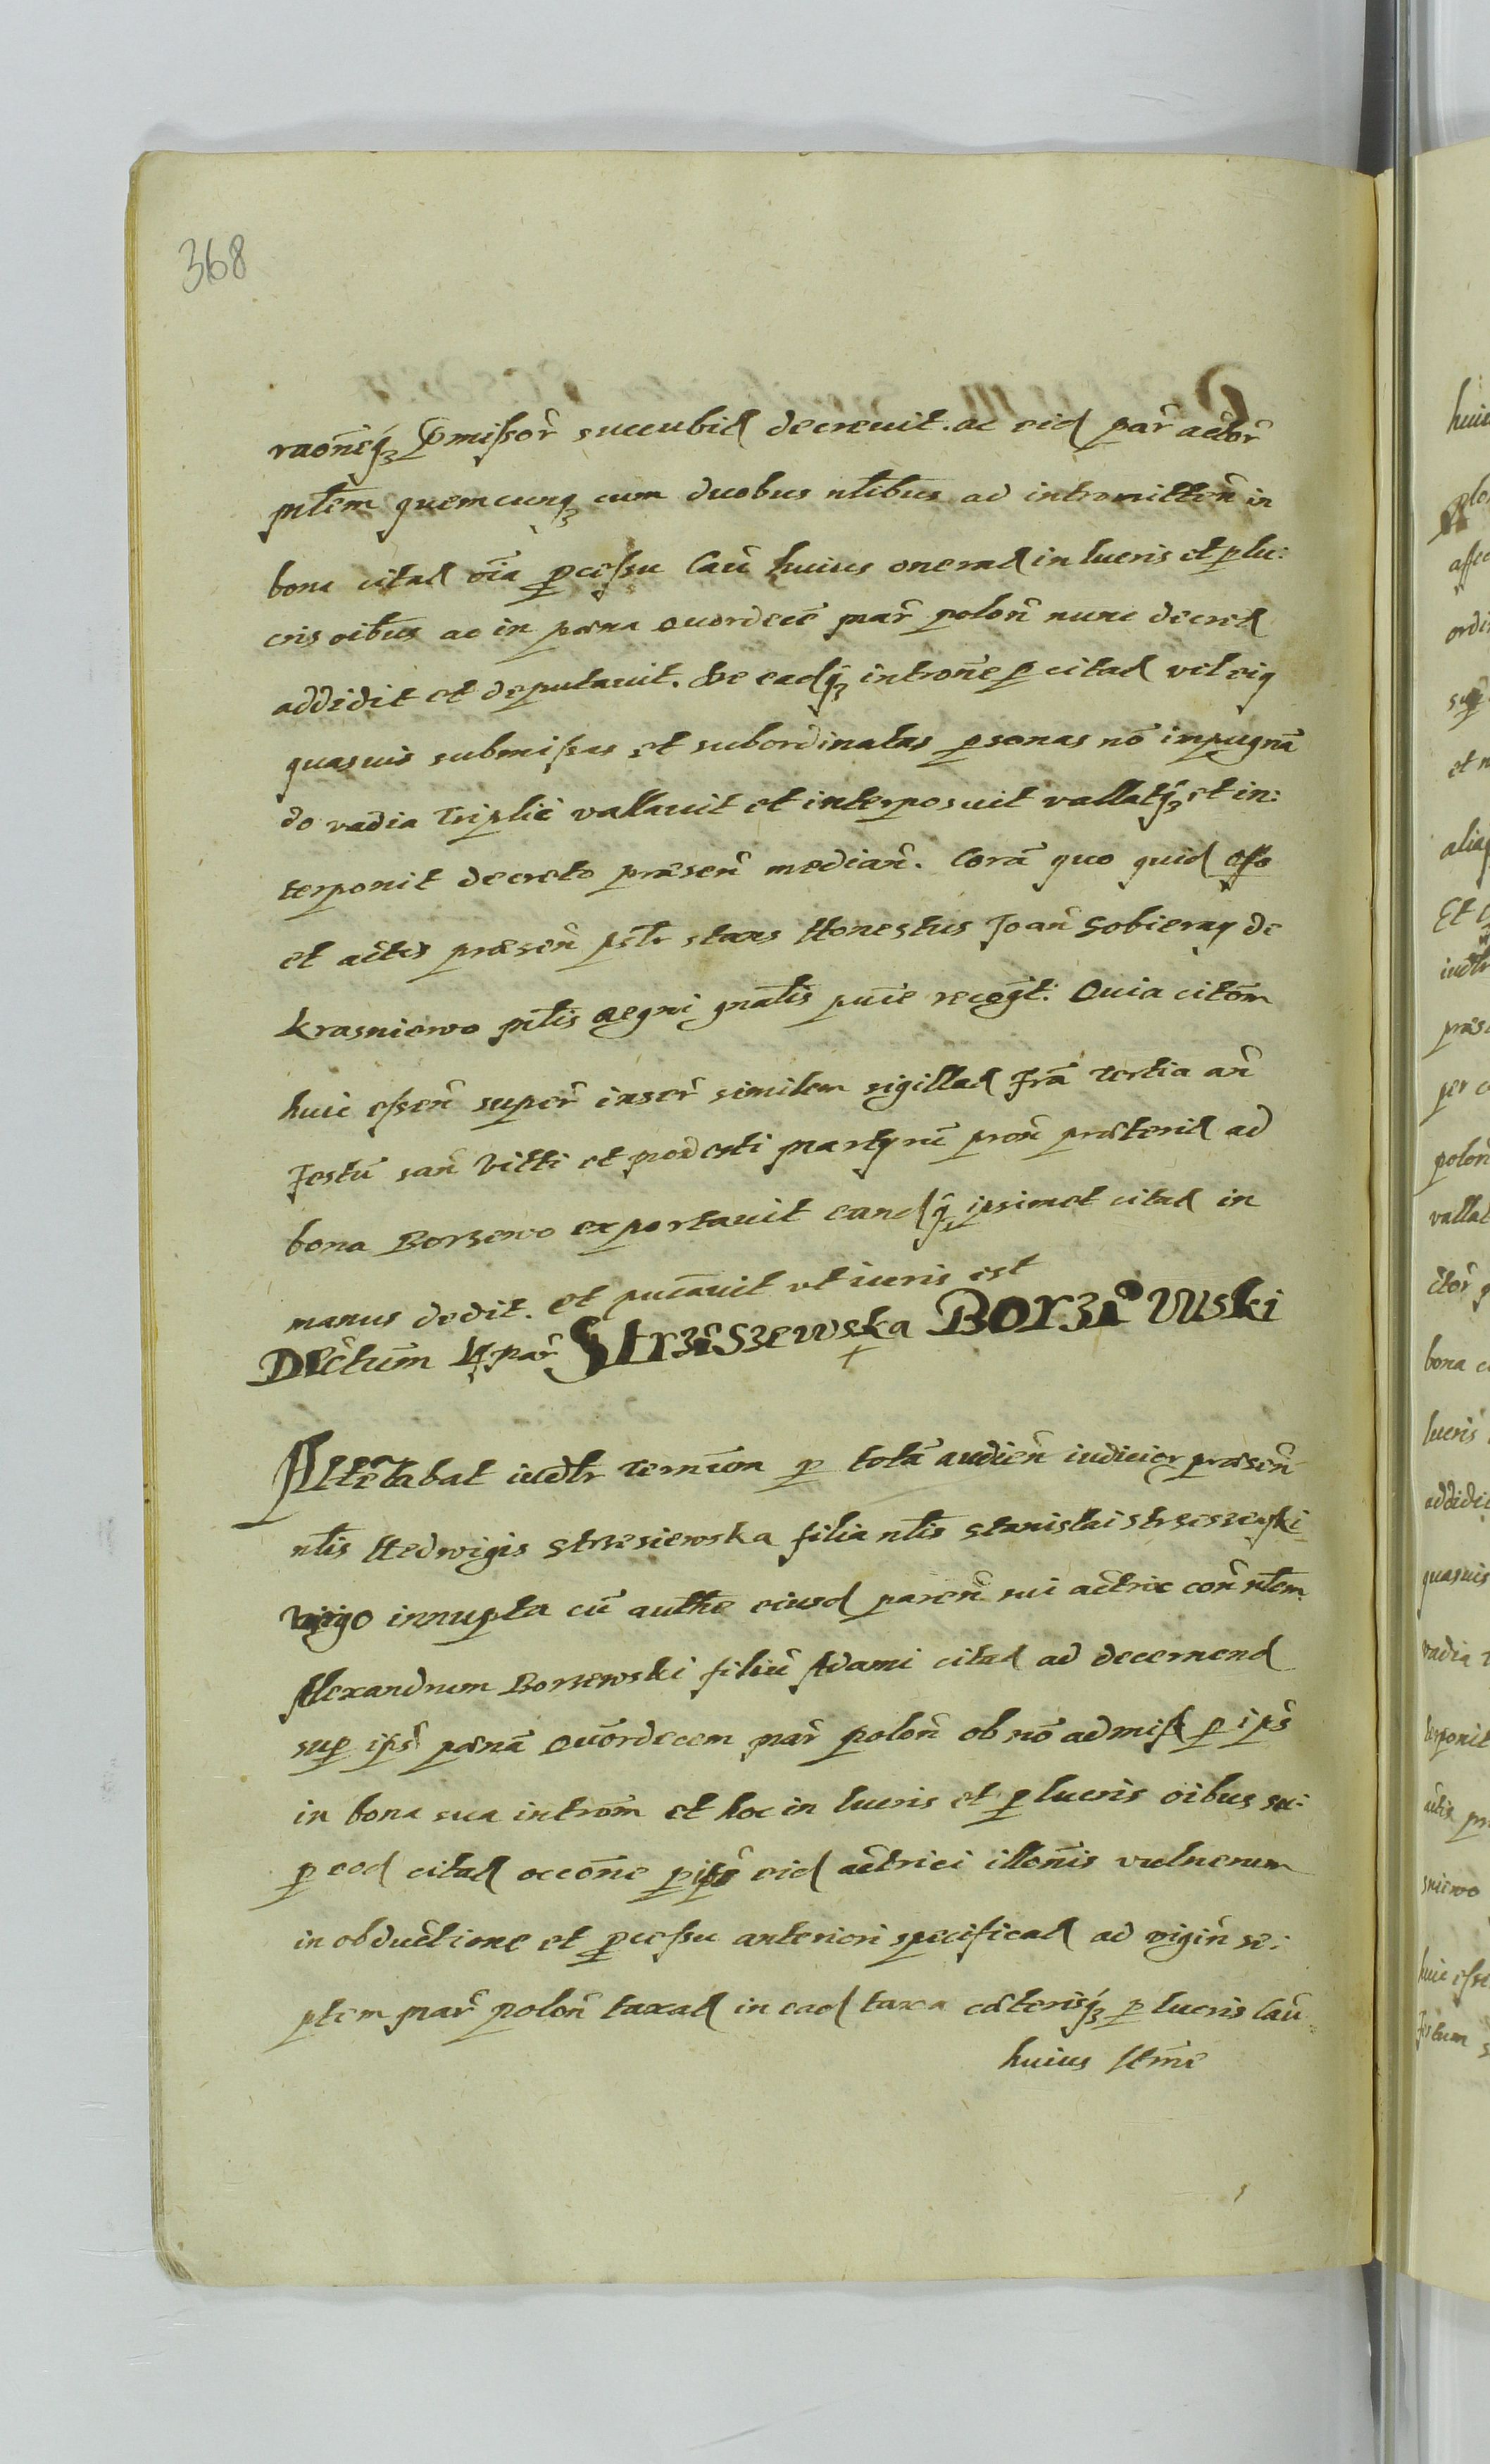 368
raōneq₃ p̄missor̄ succubit̄ decrevit. ac eid par̄ actor̄
mltem quemcunq₃ cum duobus nlibus ad intromitten̄ in
bona citat̄ oīa pcessu Cau̅ huius onerat̄ in lucris et plu:
cris oibus ac in pœna Quordecē mar̄ polon̄ nunc decret̄
addidit et deputauit. De eadq₃ introne p citat̄ vel eiq
quasuis submissas et subordinatas psonas nō impugnā
do vadia Triplić vallavit et interposuit vallatq₃ et in:
terponit decreto præsen̄ median̄. Corā quo quid offo
et actis præsen̄ pstr stans Honestus Joan̄ Sobieray de
Krasniewo mltis Regni gnalis puīe recogt. Quia citōm
huic essen̄ super̄ inser̄ similem sigillat̄ Fra Tertia an̄
Festū san̄ Vitti et Modesti Martyrū pron̄ præterit̄ ad
bona Borzewo exportavit eandq₃ ipsimet citat̄ in
manus dedit. et pucavit vt iuris est
Dectum par̄ StrziSzewska BorziWski
Attētabat iudtr Termīon p totā audien̄ iudicior præsen̄
nlis Hedwigis Strzesiewska filia nlis Stanislai Strzeszewski
Virgo innupta cū authe eiusd paren̄ sui actrix con̄ nlem
Alexandrum Borzewski filiū Adami citat̄ ad decernend
sup ips̄ pœnā Quordecem mar̄ polon̄ ob nō admiss p ips̄
in bona sua introm̄ et hoc in lucris et plucris oibus su:
p eod citat̄ occōne p ips̄ eid actrici illonis vulnerum
in obductione et pcessu anteriori specificat̄ ad vigin̄ se:
ptem mar̄ polon̄ taxat̄ in ead taxa cæterisq₃ plucris Cau̅
huius